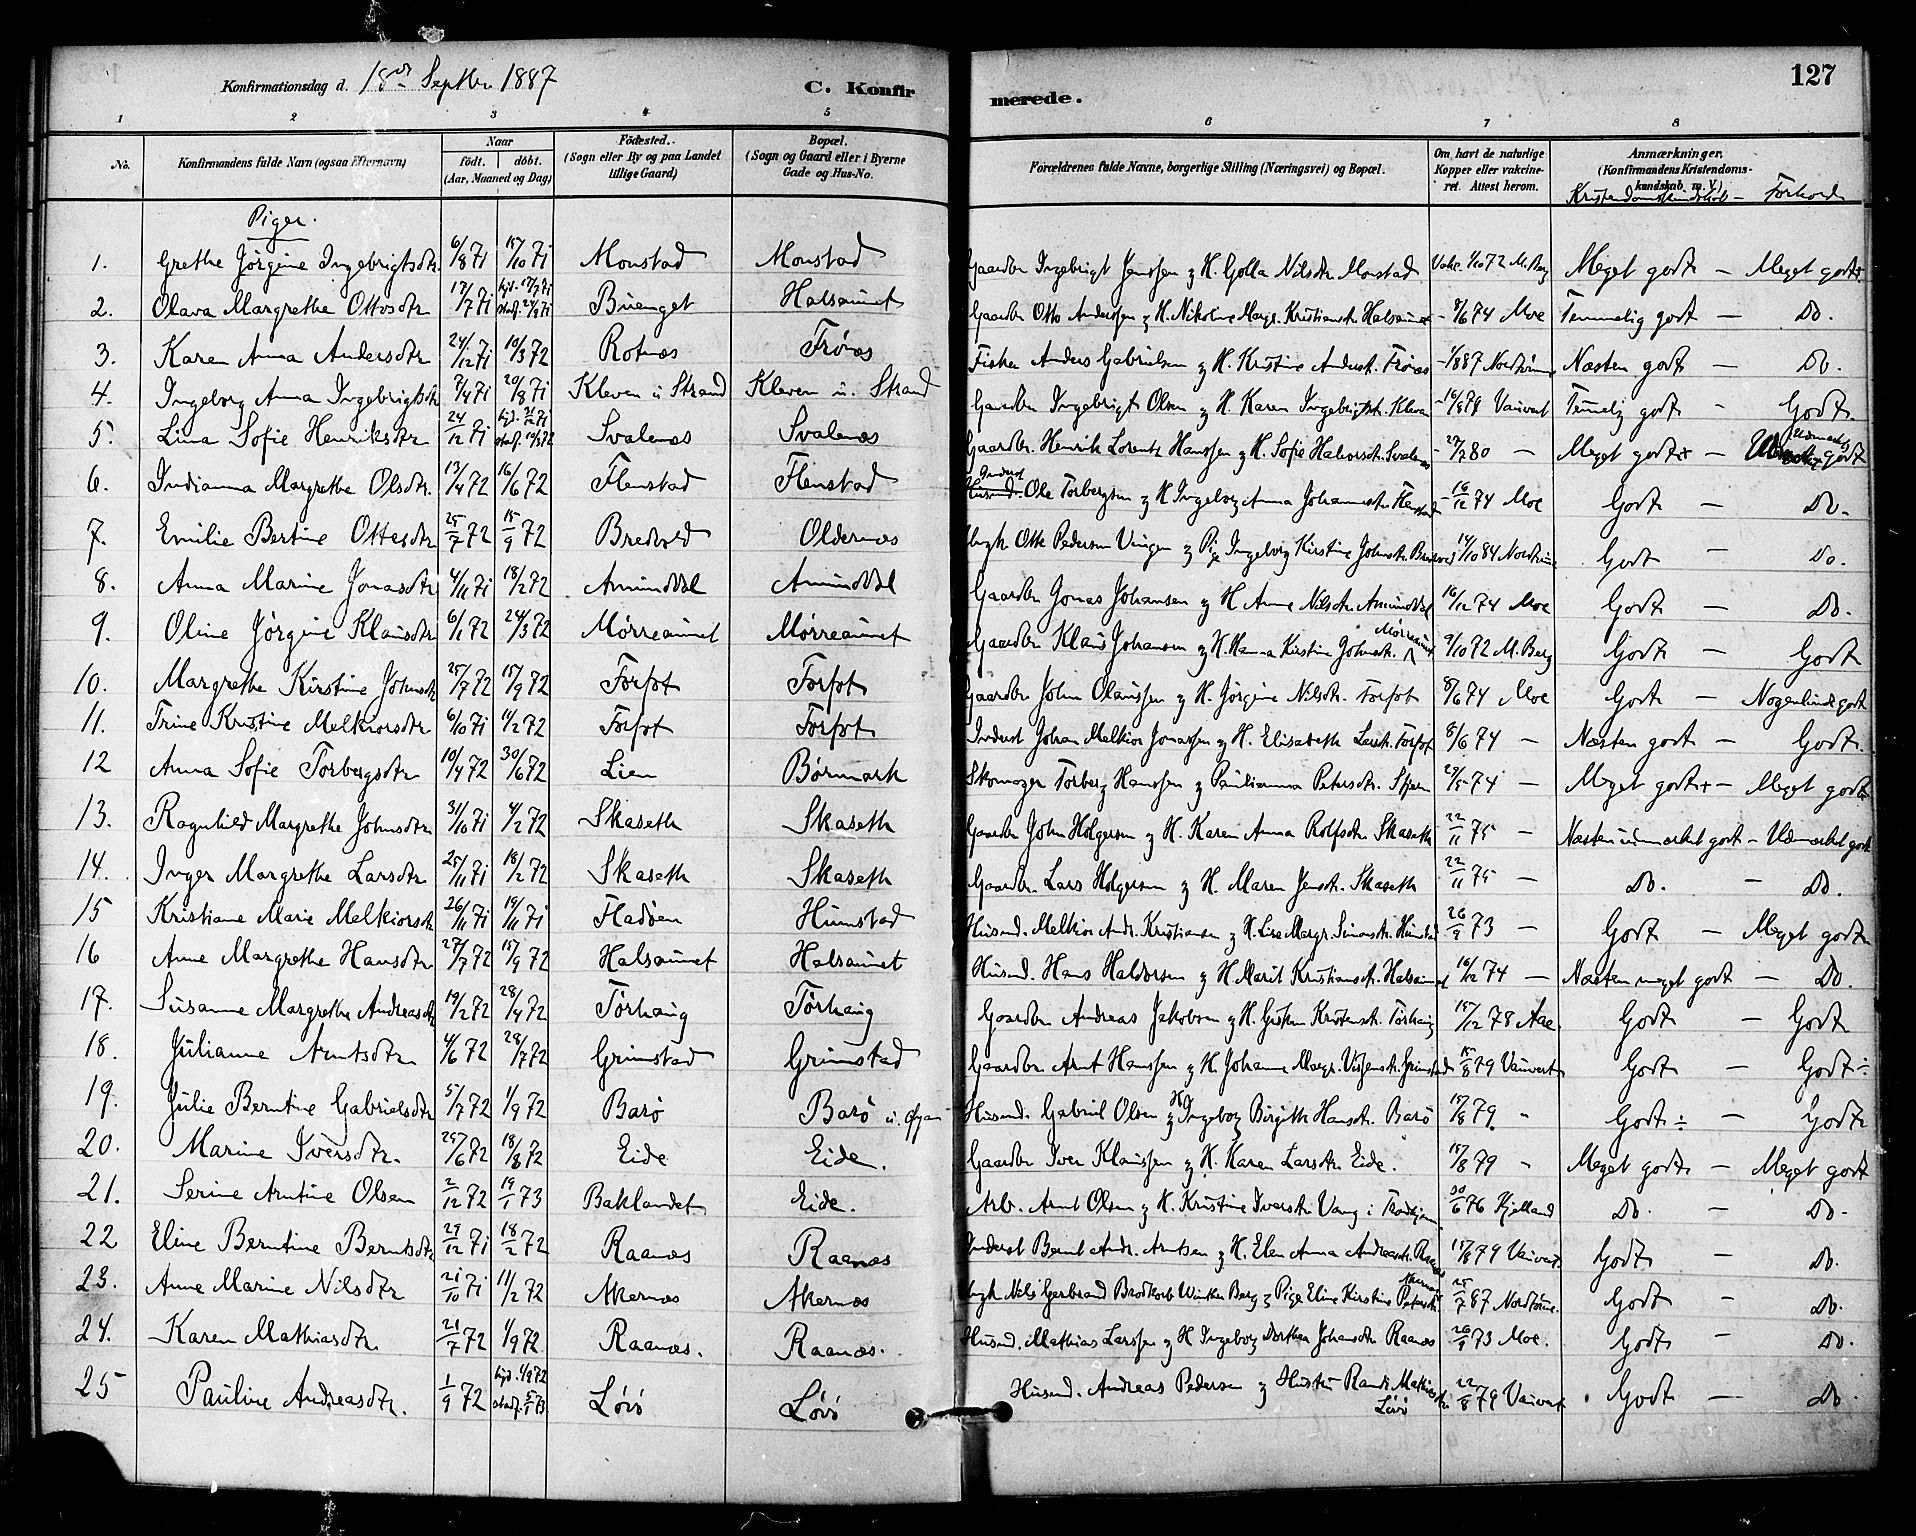 127
Konfirmationsdag d. 18de Septbr 1887
C. Konfirmerede.
1 2 3 4 5 6 7 8
No.
Konfirmandens fulde Navn (ogsaa Efternavn)
Naar
födt. döbt.
(Aar, Maaned og Dag)
Födested.
(Sogn eller By og paa Landet tillige Gaard)
Bopæl.
(Sogn og Gaard eller i Byerne Gade og Hus-No.
Forældrenes fulde Navne, borgerlige Stilling (Næringsvei) og Bopæl.
Om havt de naturlige Kopper eller vakcineret. Attest herom.
Anmærkninger.
(Konfirmandens Kristendomskundskab m. V.)
Kristendomskundskab — Forhold
Piger.
1. Grethe Jörgine Ingebrigtsdtr. 6/8 71 15/10 71 Monstad Monstad Gaardbr Ingebrigt Jenssen & H. Golla Nilsdtr. Monstad Vakc. 1/10 72 M. Berg Meget godt — Meget godt
2. Olava Margrethe Ottosdtr 17/7 71 Buenget Halsaunet Gaardbr Otto Anderssen & H. Nikoline Margr. Kristiansdtr. Halsaunet - 8/6 74 Moe Temmelig godt — Do.
3. Karen Anna Andersdtr 24/12 71 10/3 72 Rotnæs Frönæs Fisker Anders Gabrielsen & H. Kristine Andersdtr. Frönæs - 1/8 87 Næsten godt — Do.
4. Ingeborg Anna Ingebrigtsdtr 7/4 71 20/8 71 Kleven u. Strand Kleven u. Strand Gaardbr Ingebrigt Olsen & H. Karen Ingebrigtsdtr. Kleven - 16/8 79 Vauvert Temlig godt — Godt
5. Lina Sofie Henriksdtr 24/12 71 Svalenæs Svalenæs Gaardbr. Henrik Lorentz Hanssen & H. Sofie Halvorsdtr. Svalenæs - 27/7 80 — Meget godt — Udmærket godt
6. Indianna Margrethe Olsdtr. 13/4 72 16/6 72 Flenstad Flenstad Inderst Ole Torbergsen & H Ingeborg Anna Johannesdtr. Flenstad - 16/12 74 Moe Godt — Do.
7. Emilie Bertine Ottesdtr 25/7 72 15/9 72 Bredvold Oldernæs Ungk Otte Pedersen Vingen & Pige Ingeborg Kirstine Johnsdtr. 14/10 84 Godt — Do.
8. Anna Marine Jonasdtr 4/11 71 18/2 72 Amunddal Amunddal Gaardbr Jonas Johansen & H Anne Nilsdtr. Amunddal 16/12 74 Moe Godt — Do.
9. Oline Jörgine Klausdtr 6/1 72 24/3 72 Mörreaunet Mörreaunet Gaardbr Klaus Johansen & H. Hanna Kirstine Johnsdtr. Mörreaunet 9/10 72 M. Berg Godt — Godt
10. Margrethe Kirstine Johnsdtr 25/7 72 15/9 72 Forfot Forfot Gaardbr John Olaussen & H. Jörgine Nilsdtr. Forfot 8/6 74 Moe Godt — Nogenlunde godt
11. Trine Kristine Melkiorsdtr 6/10 71 11/2 72 Forfot Forfot Inderst Johan Melkior Jonassen & H. Elisabeth Larsdtr. Forfot 8/6 74 — Næsten godt — Godt.
12 Anna Sofie Torbergsdtr 10/4 72 30/6 72 Lien Börmark Skomager Torberg Hanssen & Paulianna Petersdtr. 29/5 74 — Meget godt — Meget godt
13. Ragnhild Margrethe Johnsdtr 31/10 71 4/2 72 Skaseth Skaseth Gaardbr John Holgersen & H. Karen Anna Rolfsdtr. Skaseth 22/11 75 — Næsten udmærket godt — Udmærket godt
14. Inger Margrethe Larsdtr 25/11 71 18/2 72 Skaseth Skaseth Gaardbr. Lars Holgersen & H. Maren Jensdtr. Skaseth 22/11 75 — Do. — Do.
15 Kristiane Marie Melkiorsdtr 26/11 71 19/11 71 Fladöen Humstad Husmd. Melkior Andr. Kristiansen & H. Lise Margr. Simonsdtr. Humstad 26/9 73 — Godt — Meget godt
16 Anne Margrethe Hansdtr 27/7 72 15/9 72 Halsaunet Halsaunet Husmd. Hans Haldorsen & H Marit Kristiansdtr. Halsaunet 16/12 74 — Næsten meget godt — Do.
17. Susanne Margrethe Andreasdtr 19/2 72 28/4 72 Törhaug Törhaug Gaardbr Andreas Jakobsen & H. Kristensdtr. Törhaug 15/12 78 Aae. Godt — Godt
18. Julianne Arntsdtr. 4/6 72 28/7 72 Grimstad Grimstad Gaardbr Arnt Hanssen & H Johanne Margr. Grimstad 15/8 79 Vauvert Godt — Godt ÷
19. Julie Berntine Gabrielsdtr 5/7 72 1/9 72 Barö Barö u. Öyan Husmd. Gabriel Olsen & H. Ingeborg Birgitte Hansdtr. Barö 15/8 79. " Godt ÷ — Godt
20. Marine Iversdtr. 25/6 72 18/8 72 Eide Eide. Gaardbr Iver Klaussen & H. Karen Larsdtr. Eide. 15/8 79 " Meget godt — Meget godt
21. Serine Arntine Olsen 2/12 72 19/1 73 Baklandet Eide. Arb. Arnt Olsen & H. Kristine Iversdtr. Vang i Trondhjem 30/6 76 Kjelland Do. — Do.
22 Eline Berntine Berntsdtr 29/12 71 18/2 72 Raanæs Raanæs Inderst Bernt Andr. Arntsen & H. Elen Anna Andreasdtr. Raanæs 15/8 79 Vauvert. Godt Do.
23. Anne Marine Nilsdtr 21/10 71 11/2 72 Akernæs Akernæs Ungk Nils Gerbrand Brodtkorb Winther Berg & Pige Eline Kirstine Petersdtr. Akernæs 25/7 87 Godt — Do.
24. Karen Mathiasdtr. 21/7 72 1/9 72 Raanæs. Raanæs. Husmd. Mathias Larssen & H Ingeborg Dorthea Johansdtr Raanæs 26/9 73 Moe. Godt — Do.
25 Pauline Andreasdtr. 1/9 72 hjd. 1/9 72 stadf. 5/1 73 Lövö Lövö Husmd. Andreas Pedersen & Hustru Randi Mathiasdtr. Lövö 22/8 79 Vauvert Godt — Do